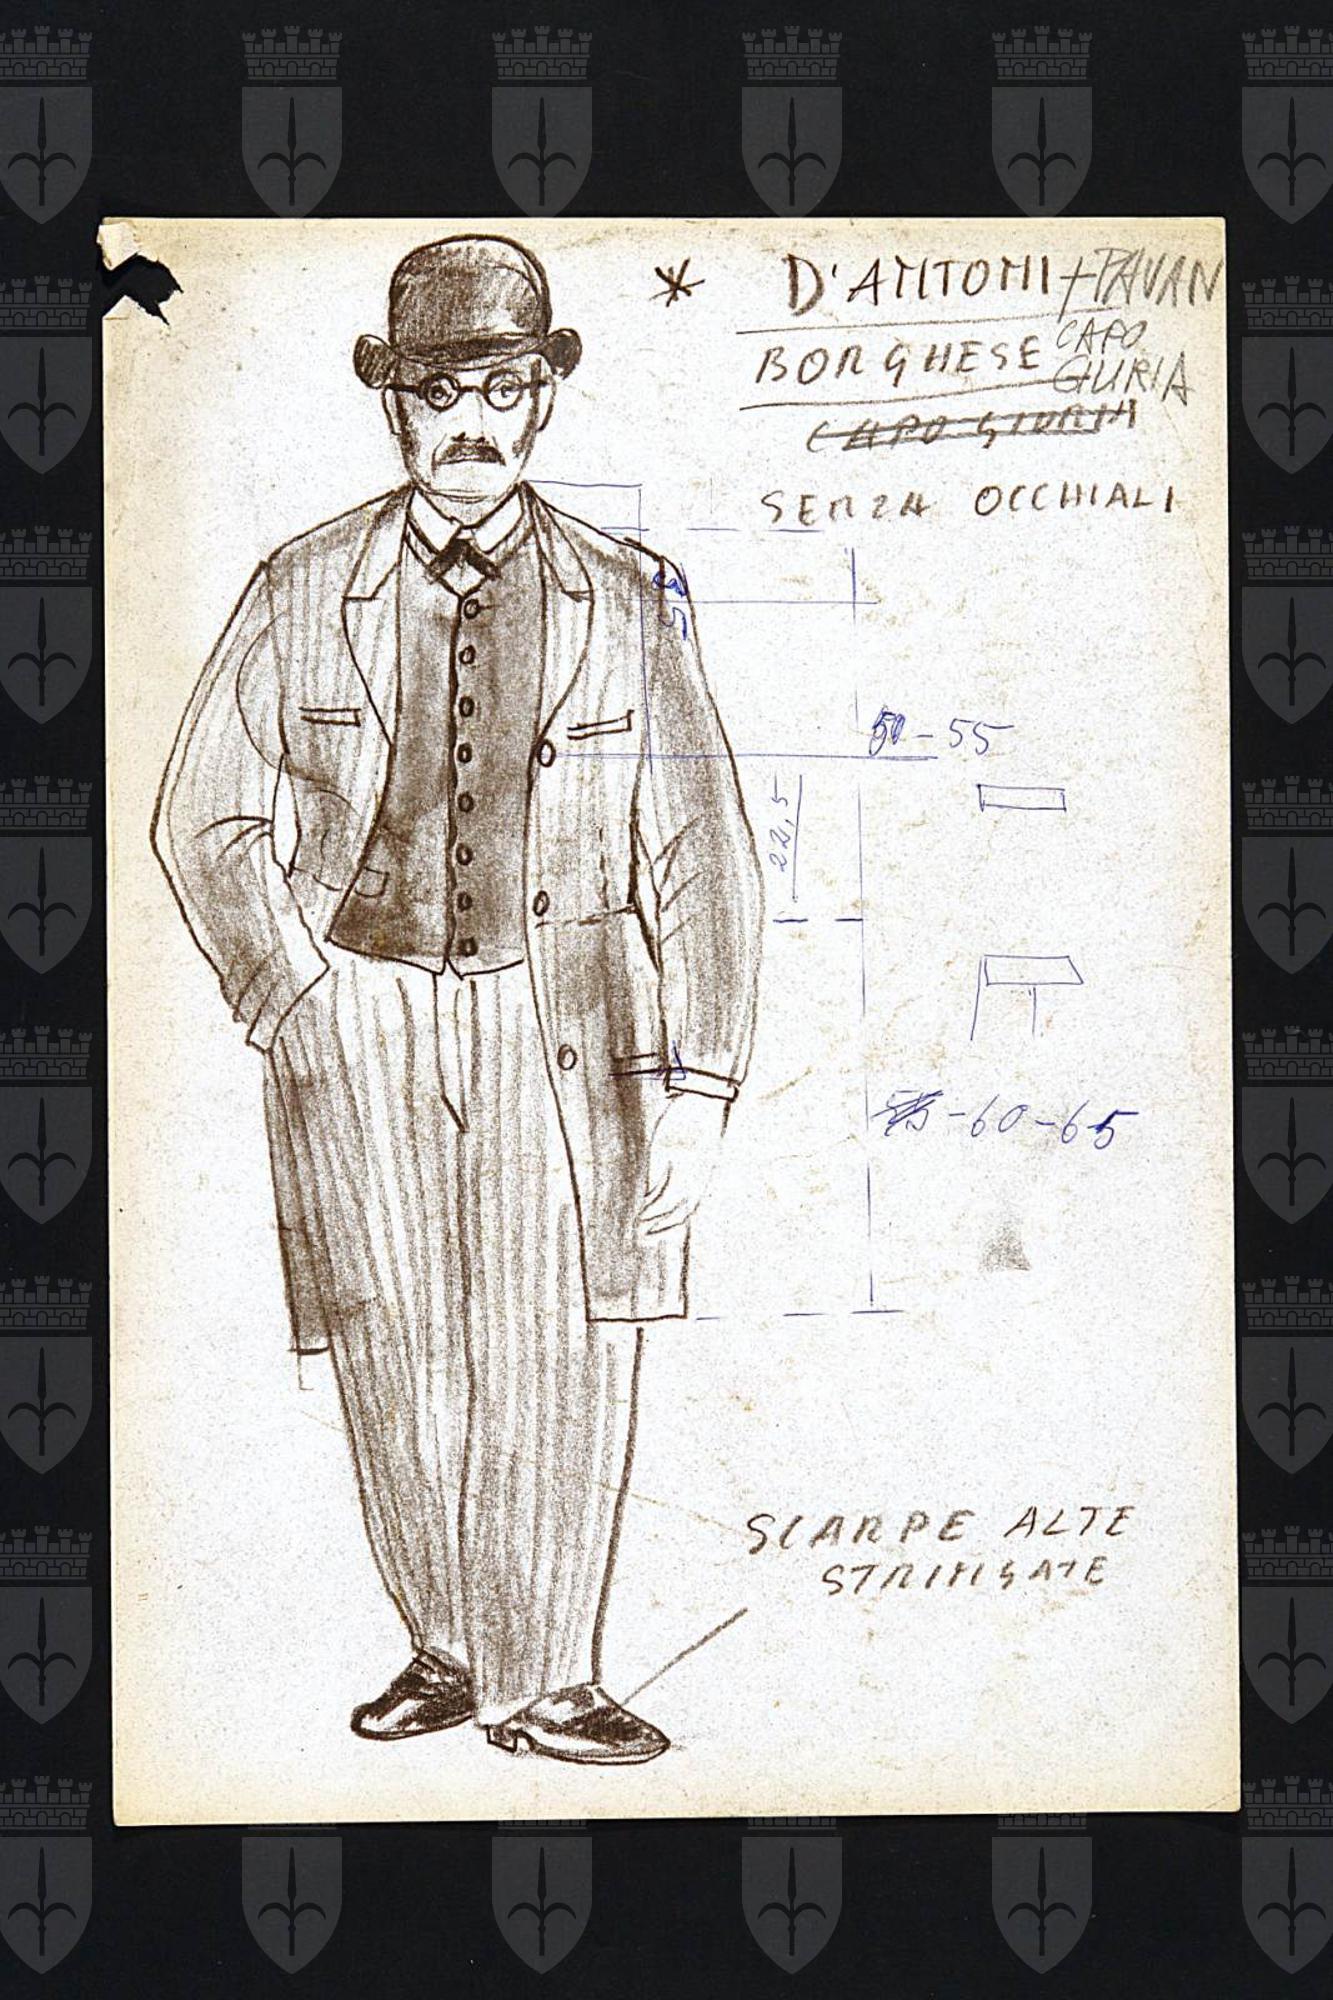 * D'ANTONI + PAVAN
BORGHESE CAPO
GIURIA
CAPO GIURIA
SENZA OCCHIALI
35
50-55
22,5
55-60-65
SCARPE ALTE
STRINGATE